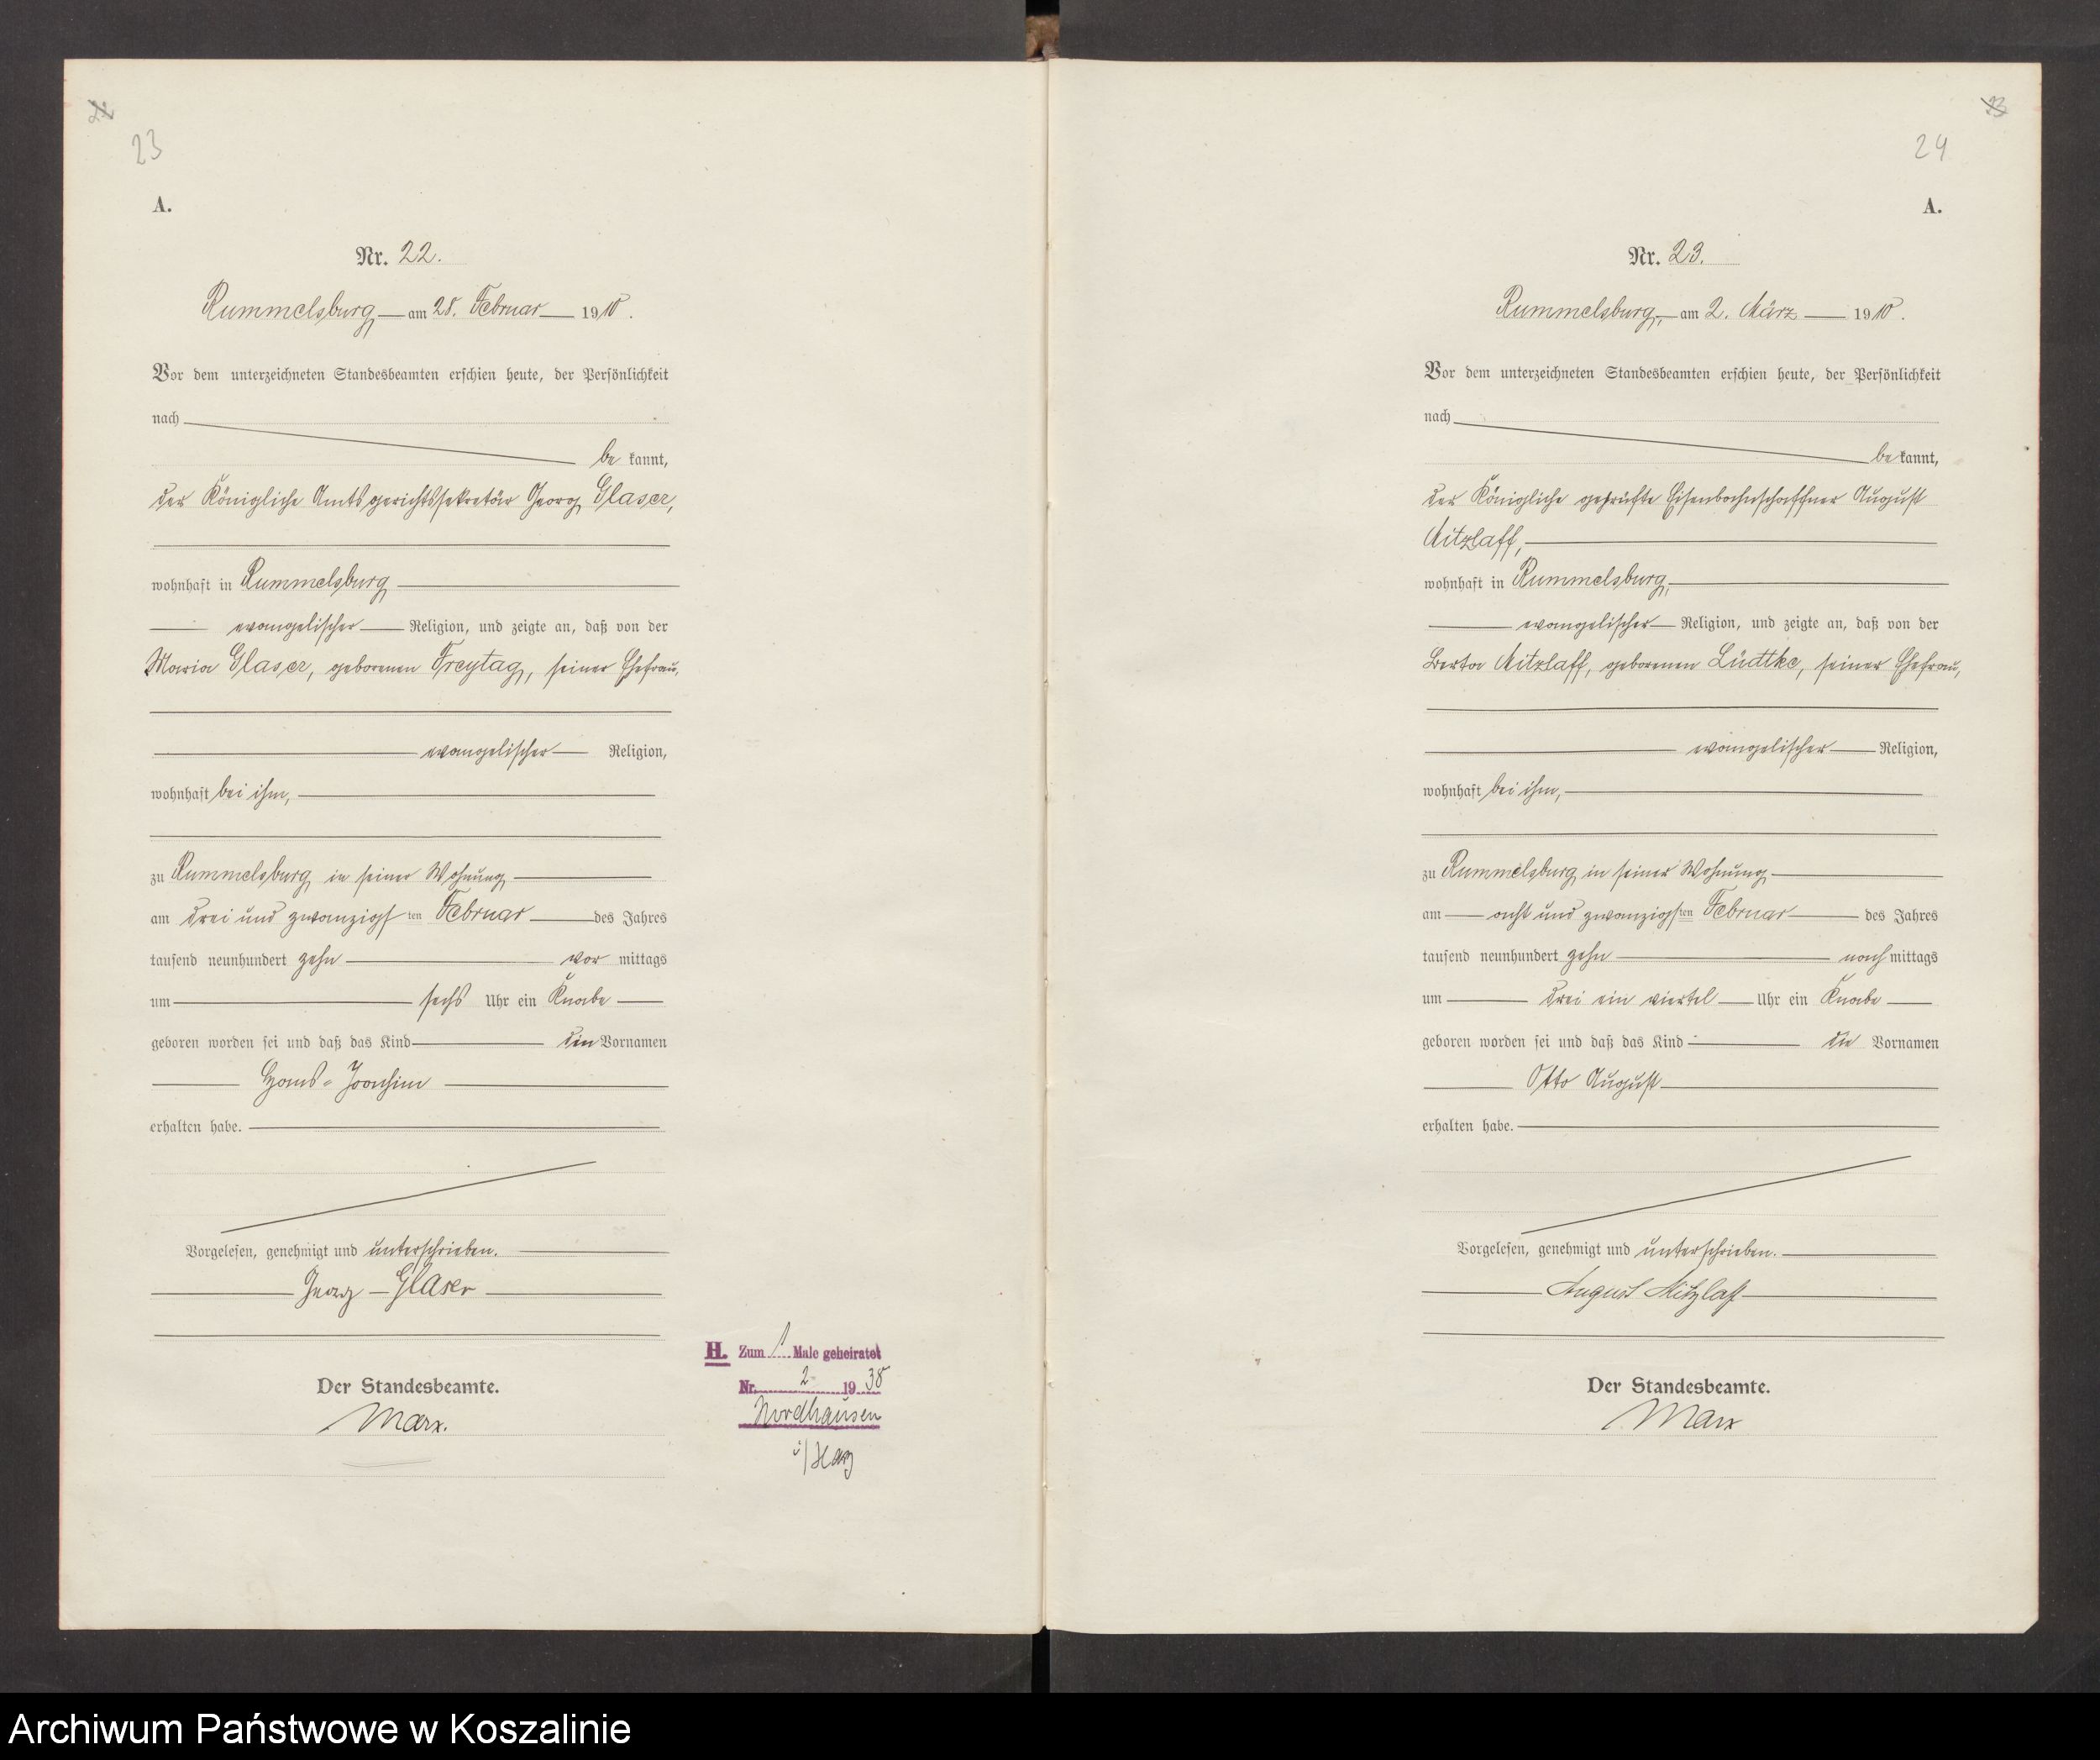 22
23
A.
Nr. 22.
Rummelsburg am 28. Februar 1910.
Vor dem unterzeichneten Standesbeamten erschien heute, der Persönlichkeit
nach
be kannt,
der Königliche Amtsgerichtssekretär Georg Glaser,
wohnhaft in Rummelsburg
evangelischer Religion, und zeigte an, daß von der
Maria Glaser, geborenen Freytag, seiner Ehefrau,
evangelischer Religion,
wohnhaft bei ihm,
zu Rummelsburg in seiner Wohnung
am drei und zwanzigsten Februar des Jahres
tausend neunhundert zehn vor mittags
um sechs Uhr ein Knabe
geboren worden sei und daß das Kind den Vornamen
Hans-Joachim
erhalten habe.
Vorgelesen, genehmigt und unterschrieben.
Georg Glaser
Der Standesbeamte.
Marx.
H. Zum 1 Male geheiratet
Nr. 2 1938
Nordhausen
i/Harz
23
24
A.
Nr. 23.
Rummelsburg, am 2. März 1910.
Vor dem unterzeichneten Standesbeamten erschien heute, der Persönlichkeit
nach
be kannt,
der Königliche geprüfte Eisenbahnschaffner August
Mitzlaff,
wohnhaft in Rummelsburg,
evangelischer Religion, und zeigte an, daß von der
Berta Mitzlaff, geborenen Lüdtke, seiner Ehefrau,
evangelischer Religion,
wohnhaft bei ihm,
zu Rummelsburg in seiner Wohnung
am acht und zwanzigsten Februar des Jahres
tausend neunhundert zehn nach mittags
um drei ein viertel Uhr ein Knabe
geboren worden sei und daß das Kind die Vornamen
Otto August
erhalten habe.
Vorgelesen, genehmigt und unterschrieben.
August Mitzlaff
Der Standesbeamte.
Marx
Archiwum Państwowe w Koszalinie